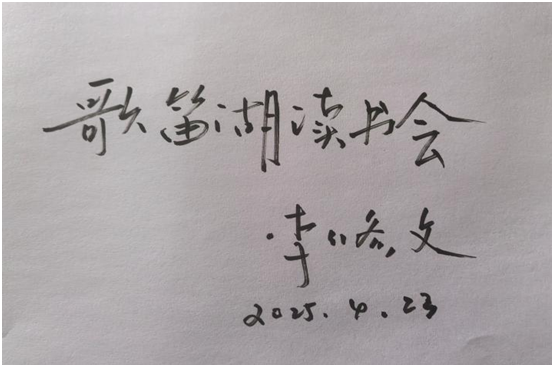 歌笛湖读书会
李修文
2025.4.23